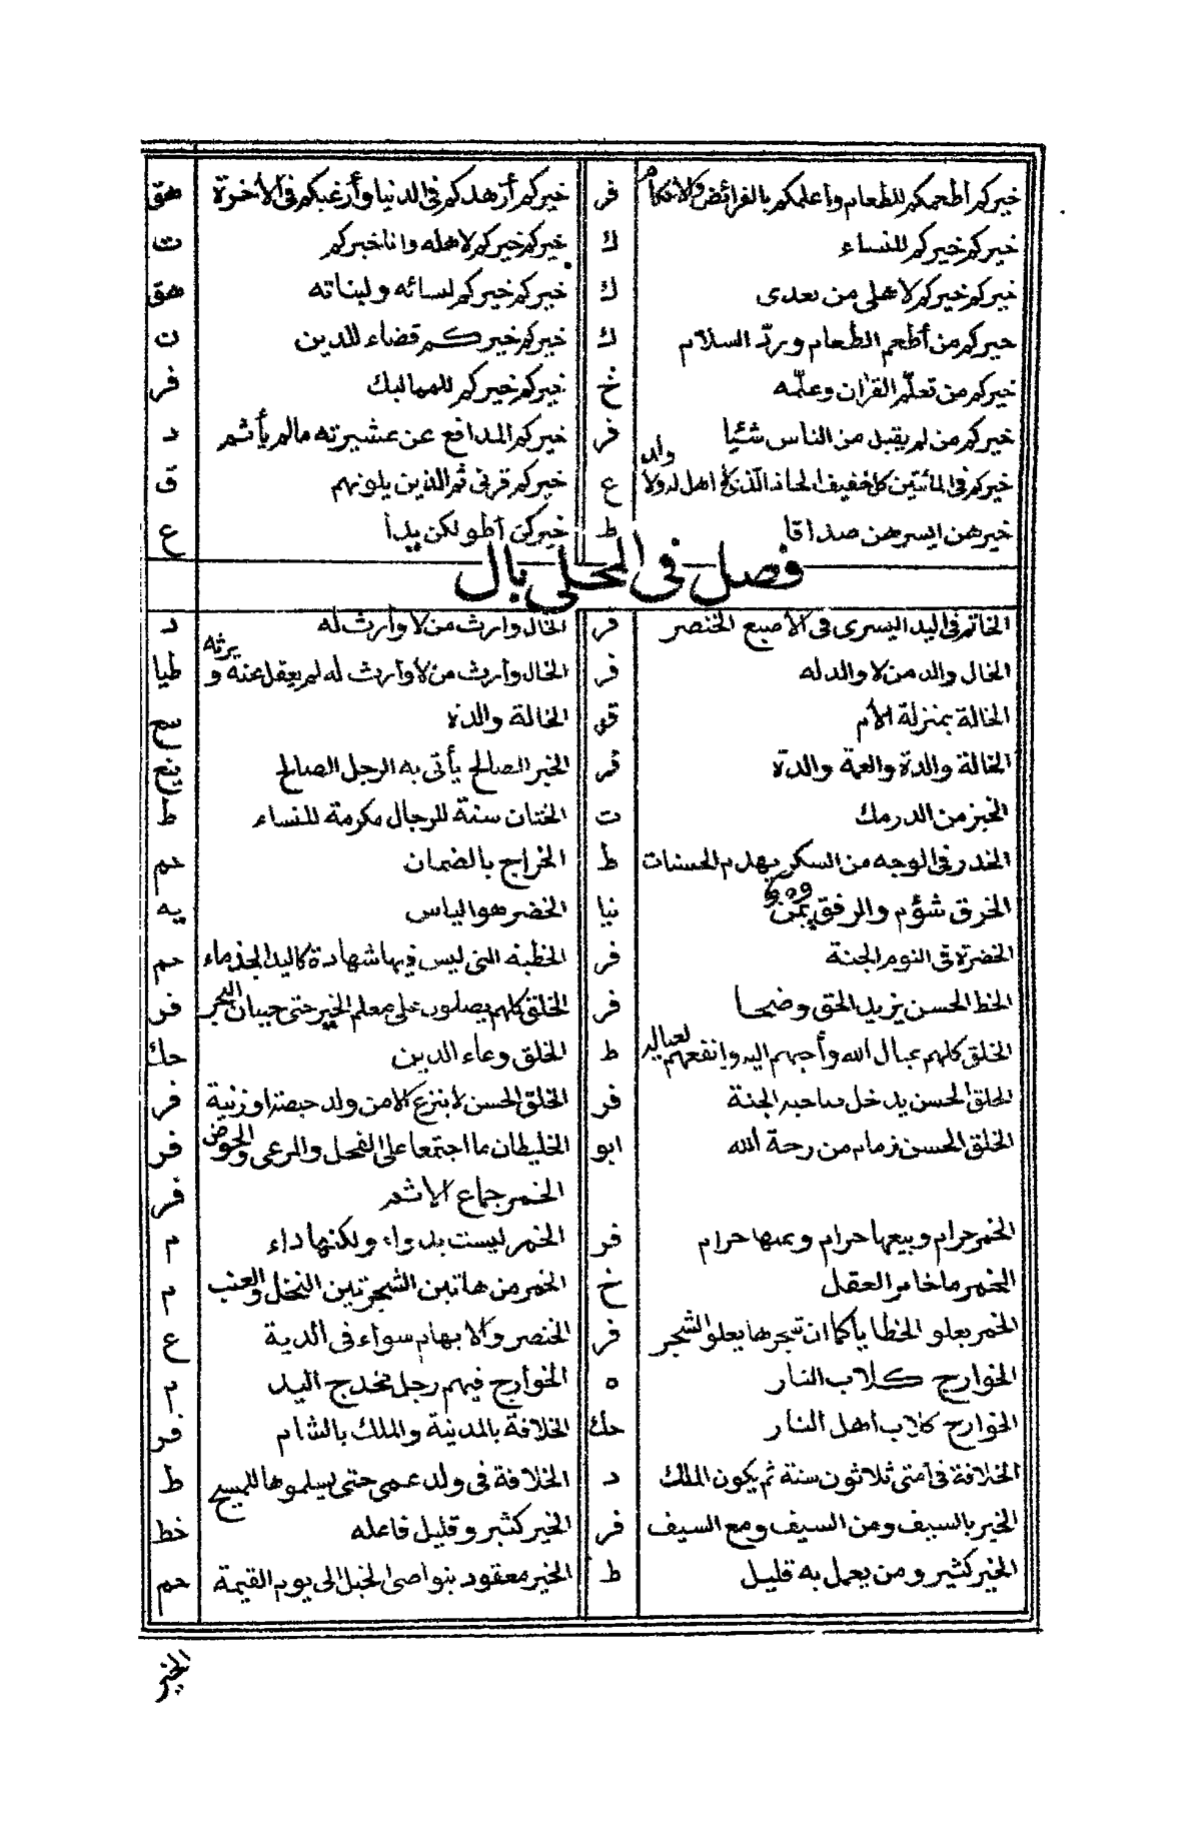 خيركم أطعمكم للطعام وأعلمكم بالفرائض والاحكام فر خيركم أزهدكم في الدنيا وأرغبكم في الأخرة هق
خيركم خيركم للنساء ك خيركم خيركم لاهله وانا خيركم ت
خيركم خيركم لاهلى من بعدى ك خيركم خيركم لنسائه ولبناته هق
خيركم من أطعم الطعام وردّ السلام ك خيركم خيركم قضاء للدين ن
خيركم من تعلّم القرأن وعلّمه خ خيركم خيركم للمماليك فر
خيركم من لم يقبل من الناس شئيا فر خيركم المدافع عن عشيرته مالم يأثم د
خيركم في المائتين كل خفيف الحاذ الذى لا اهل له ولا ولد ع خيركم قرنى ثم الذين يلونهم ق
خيرهن ايسرهن صداقا ط خيركن أطولكن يدا ع
فصل فى المحلى بال
الخاتم في اليد اليسرى في الأصبع الخنصر فر الخال وارث من لا وارث له د
الخال والد من لا والد له فر الخال وارث من لا وارث له لم يعقل عنه و يرثه طيا
الخالة بمنزلة الأم ق الخالة والدة سع
الخالة والدة والعمة والدة فر الخبر الصالح يأتى به الرجل الصالح
الخبز من الدرمك ت الختان سنة للرجال مكرمة للنساء ط
الخدر في الوجه من السكر يهدم الحسنات ط الخراج بالضمان حم
الخرق شؤم والرفق يمن نيا الخضر هو الياس يه
الخضرة في النوم الجنة فر الخطبة التى ليس فيها شهادة كاليد الجذماء حم
الخط الحسن يزيد الحق وضحا فر الخلق كلهم يصلون على معلم الخير حتى حيتان البحر فر
الخلق كلهم عيال الله وأحبهم اليه وانفعهم لعياله ط الخلق وعاء الدين حك
الخلق الحسن يدخل صاحبه الجنة فر الخلق الحسن لا ينزع الا من ولد حيضة او زنية فر
الخلق الحسن زمام من رحمة الله ابو الخليطان ما اجتمعا على الفحل والمرعى والحوض فر
الخمر جماع الاثم فر
الخمر حرام وبيعها حرام وثمنها حرام فر الخمر ليست بدواء ولكنها داء م
الخمر ما خامر العقل خ الخمر من هاتين الشجرتين النخل والعنب م
الخمر يعلو الخطايا كما ان شجرها يعلو الشجر فر الخنصر والابهام سواء في الدية ع
الخوارج كلاب النار ه الخوارج فيهم رجل مخدج اليد م
الخوارج كلاب اهل النار حك الخلافة بالمدينة والملك بالشام فر
الخلافة في أمتى ثلاثون سنة ثم يكون الملك د الخلافة في ولد عمى حتى يسلموها للمسيح ط
الخير بالسيف ومن السيف ومع السيف فر الخير كثير وقليل فاعله خط
الخير كثير ومن يعمل به قليل ط الخير معقود بنواصى الخيل الى يوم القيمة حم
الخير